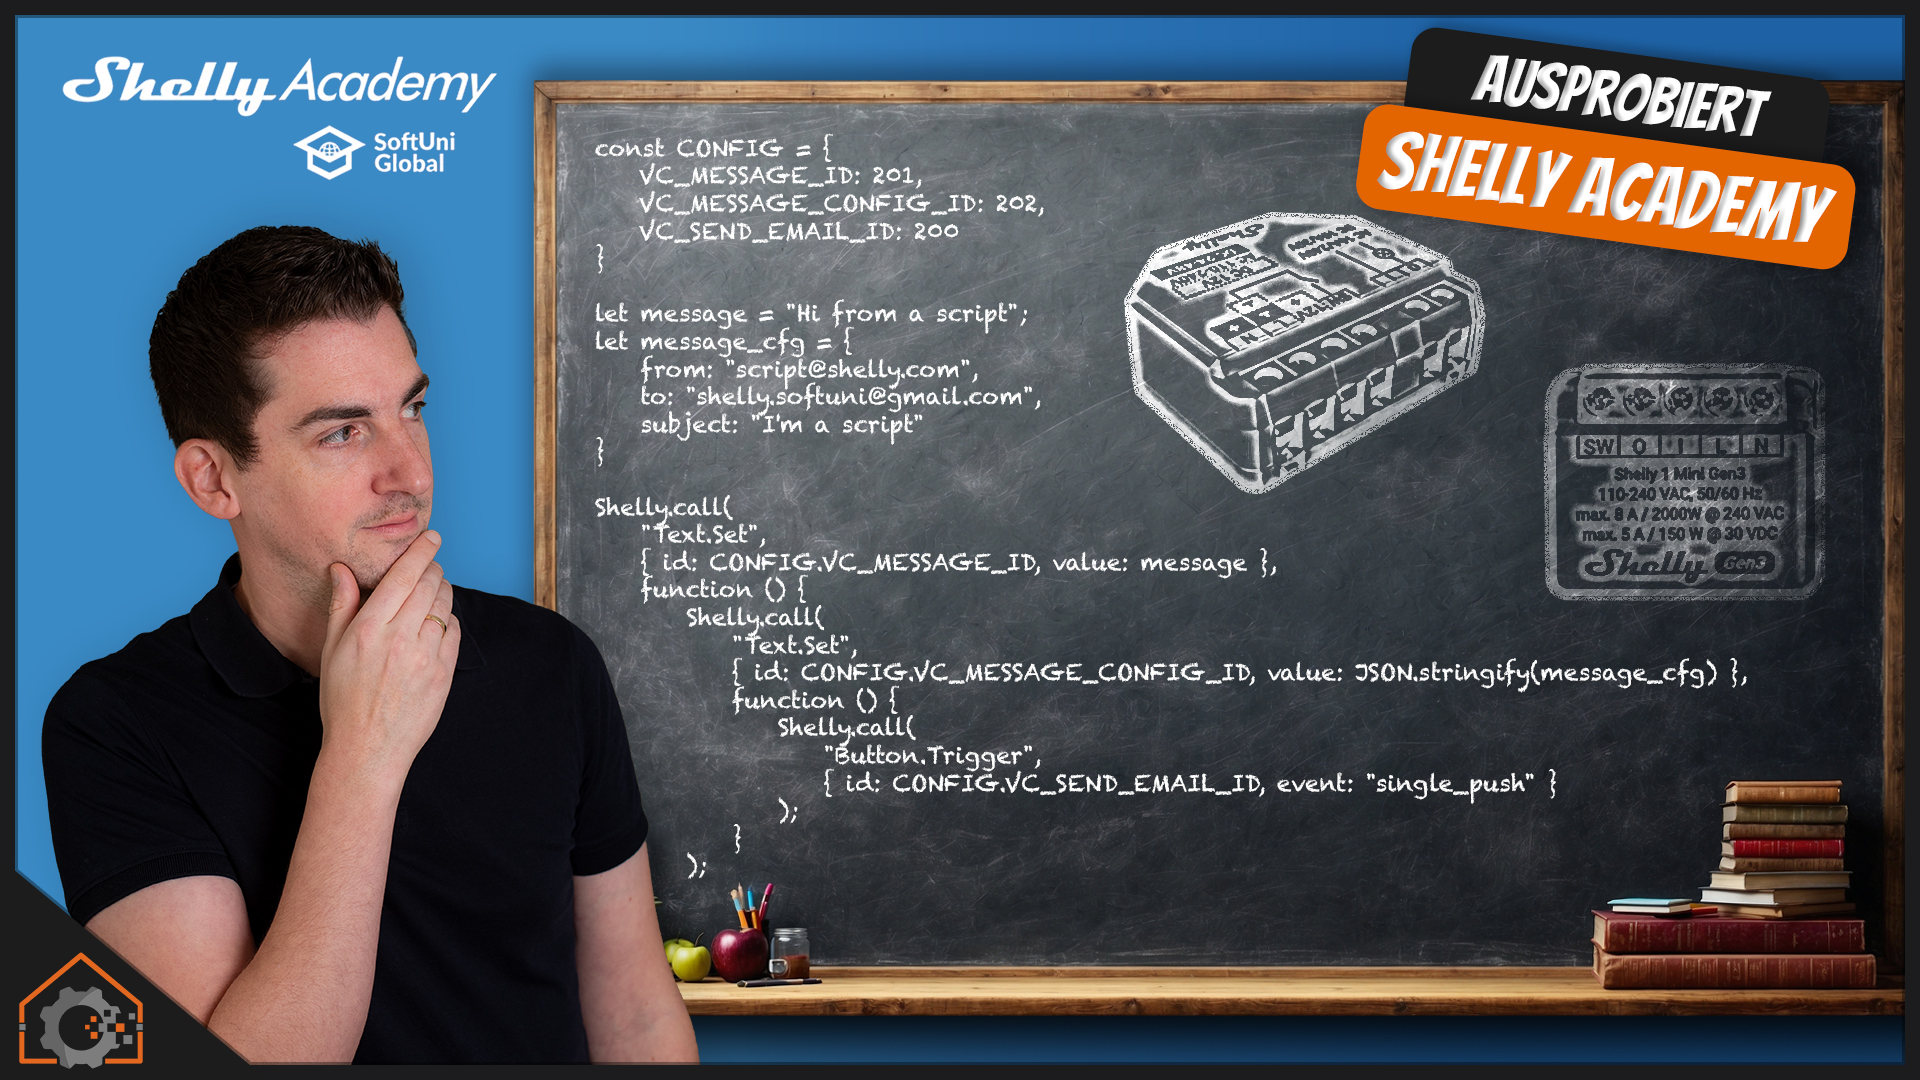 Shelly Academy
SoftUni
Global
AUSPROBIERT
SHELLY ACADEMY
const CONFIG = {
VC_MESSAGE_ID: 201,
VC_MESSAGE_CONFIG_ID: 202,
VC_SEND_EMAIL_ID: 200
}
let message = "Hi from a script";
let message_cfg = {
from: "script@shelly.com",
to: "shelly.softuni@gmail.com",
subject: "I'm a script"
}
Shelly.call(
"Text.Set",
{ id: CONFIG.VC_MESSAGE_ID, value: message },
function () {
Shelly.call(
"Text.Set",
{ id: CONFIG.VC_MESSAGE_CONFIG_ID, value: JSON.stringify(message_cfg) },
function () {
Shelly.call(
"Button.Trigger",
{ id: CONFIG.VC_SEND_EMAIL_ID, event: "single_push" }
);
}
);
Shelly
SW O I L N
Shelly 1 Mini Gen3
110-240 VAC, 50/60 Hz
max. 8 A / 2000W @ 240 VAC
max. 5 A / 150 W @ 30 VDC
Shelly Gen3